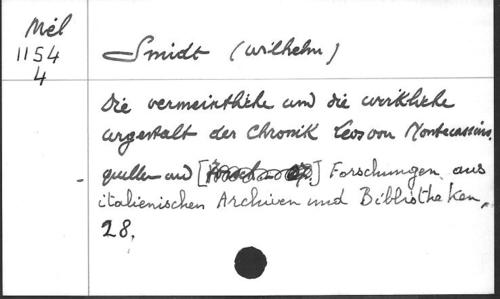 Mél
1154
4
Smidt (Wilhelm)
Die vermeintliche und die wirkliche
urgestalt der Chronik Leos von Montecassino.
quellen und [ ] Forschungen aus
italienischen Archiven und Bibliotheken,
28.